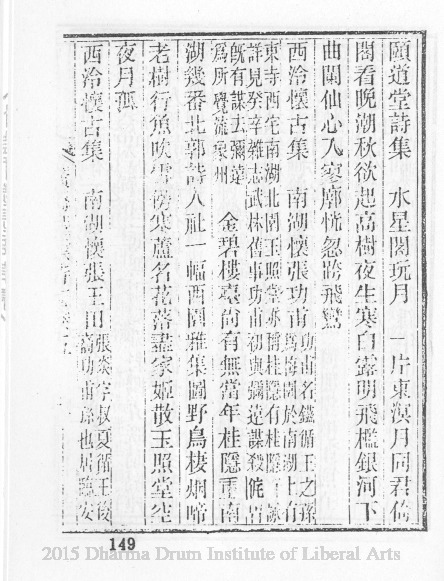 頤道堂詩集　水星閣玩月　一片東溟月同君倚
閣看晚潮秋欲起高樹夜生寒白露明飛檻銀河下
曲闌仙心入寥廓恍忽跨飛鸞
西泠懷古集　南湖懷張功甫功甫名鎡循王之孫
為海園於南湖上有
東寺西宅南湖北園玉照堂亦稱桂隱有桂隱
詳見癸辛雜志武林舊事功甫初與彌遠謀殺侂冑
既有謀去彌遠
為所覺流象州　金碧樓臺尚有無當年桂隱重南
湖幾番北郭詩入社一幅西園雅集圖野鳥棲烟啼
老樹行魚吹雪傍寒蘆名花落盡家姬散玉照堂空
夜月孤
西泠懷古集　南湖懷張玉田張炎字叔夏循王後
裔功甫孫也居臨安
149
2015 Dharma Drum Institute of Liberal Arts